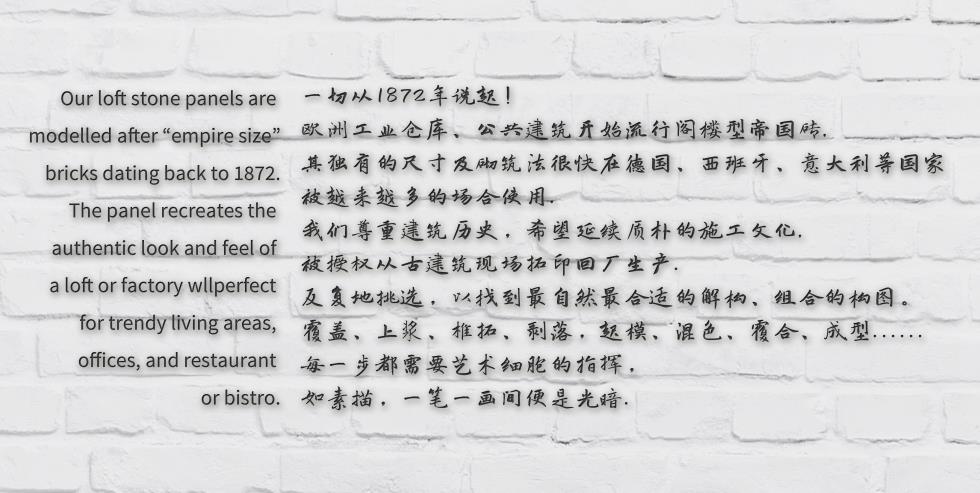 Our loft stone panels are
modelled after “empire size”
bricks dating back to 1872.
The panel recreates the
authentic look and feel of
a loft or factory wllperfect
for trendy living areas,
offices, and restaurant
or bistro.
一切从1872年说起！
欧洲工业仓库、公共建筑开始流行阁楼型帝国砖.
其独有的尺寸及砌筑法很快在德国、西班牙、意大利等国家
被越来越多的场合使用.
我们尊重建筑历史，希望延续质朴的施工文化.
被授权从古建筑现场拓印回厂生产.
反复地挑选，以找到最自然最合适的解构、组合的构图。
覆盖、上浆、椎拓、剥落，起模、混色、覆合、成型……
每一步都需要艺术细胞的指挥，
如素描，一笔一画间便是光暗.